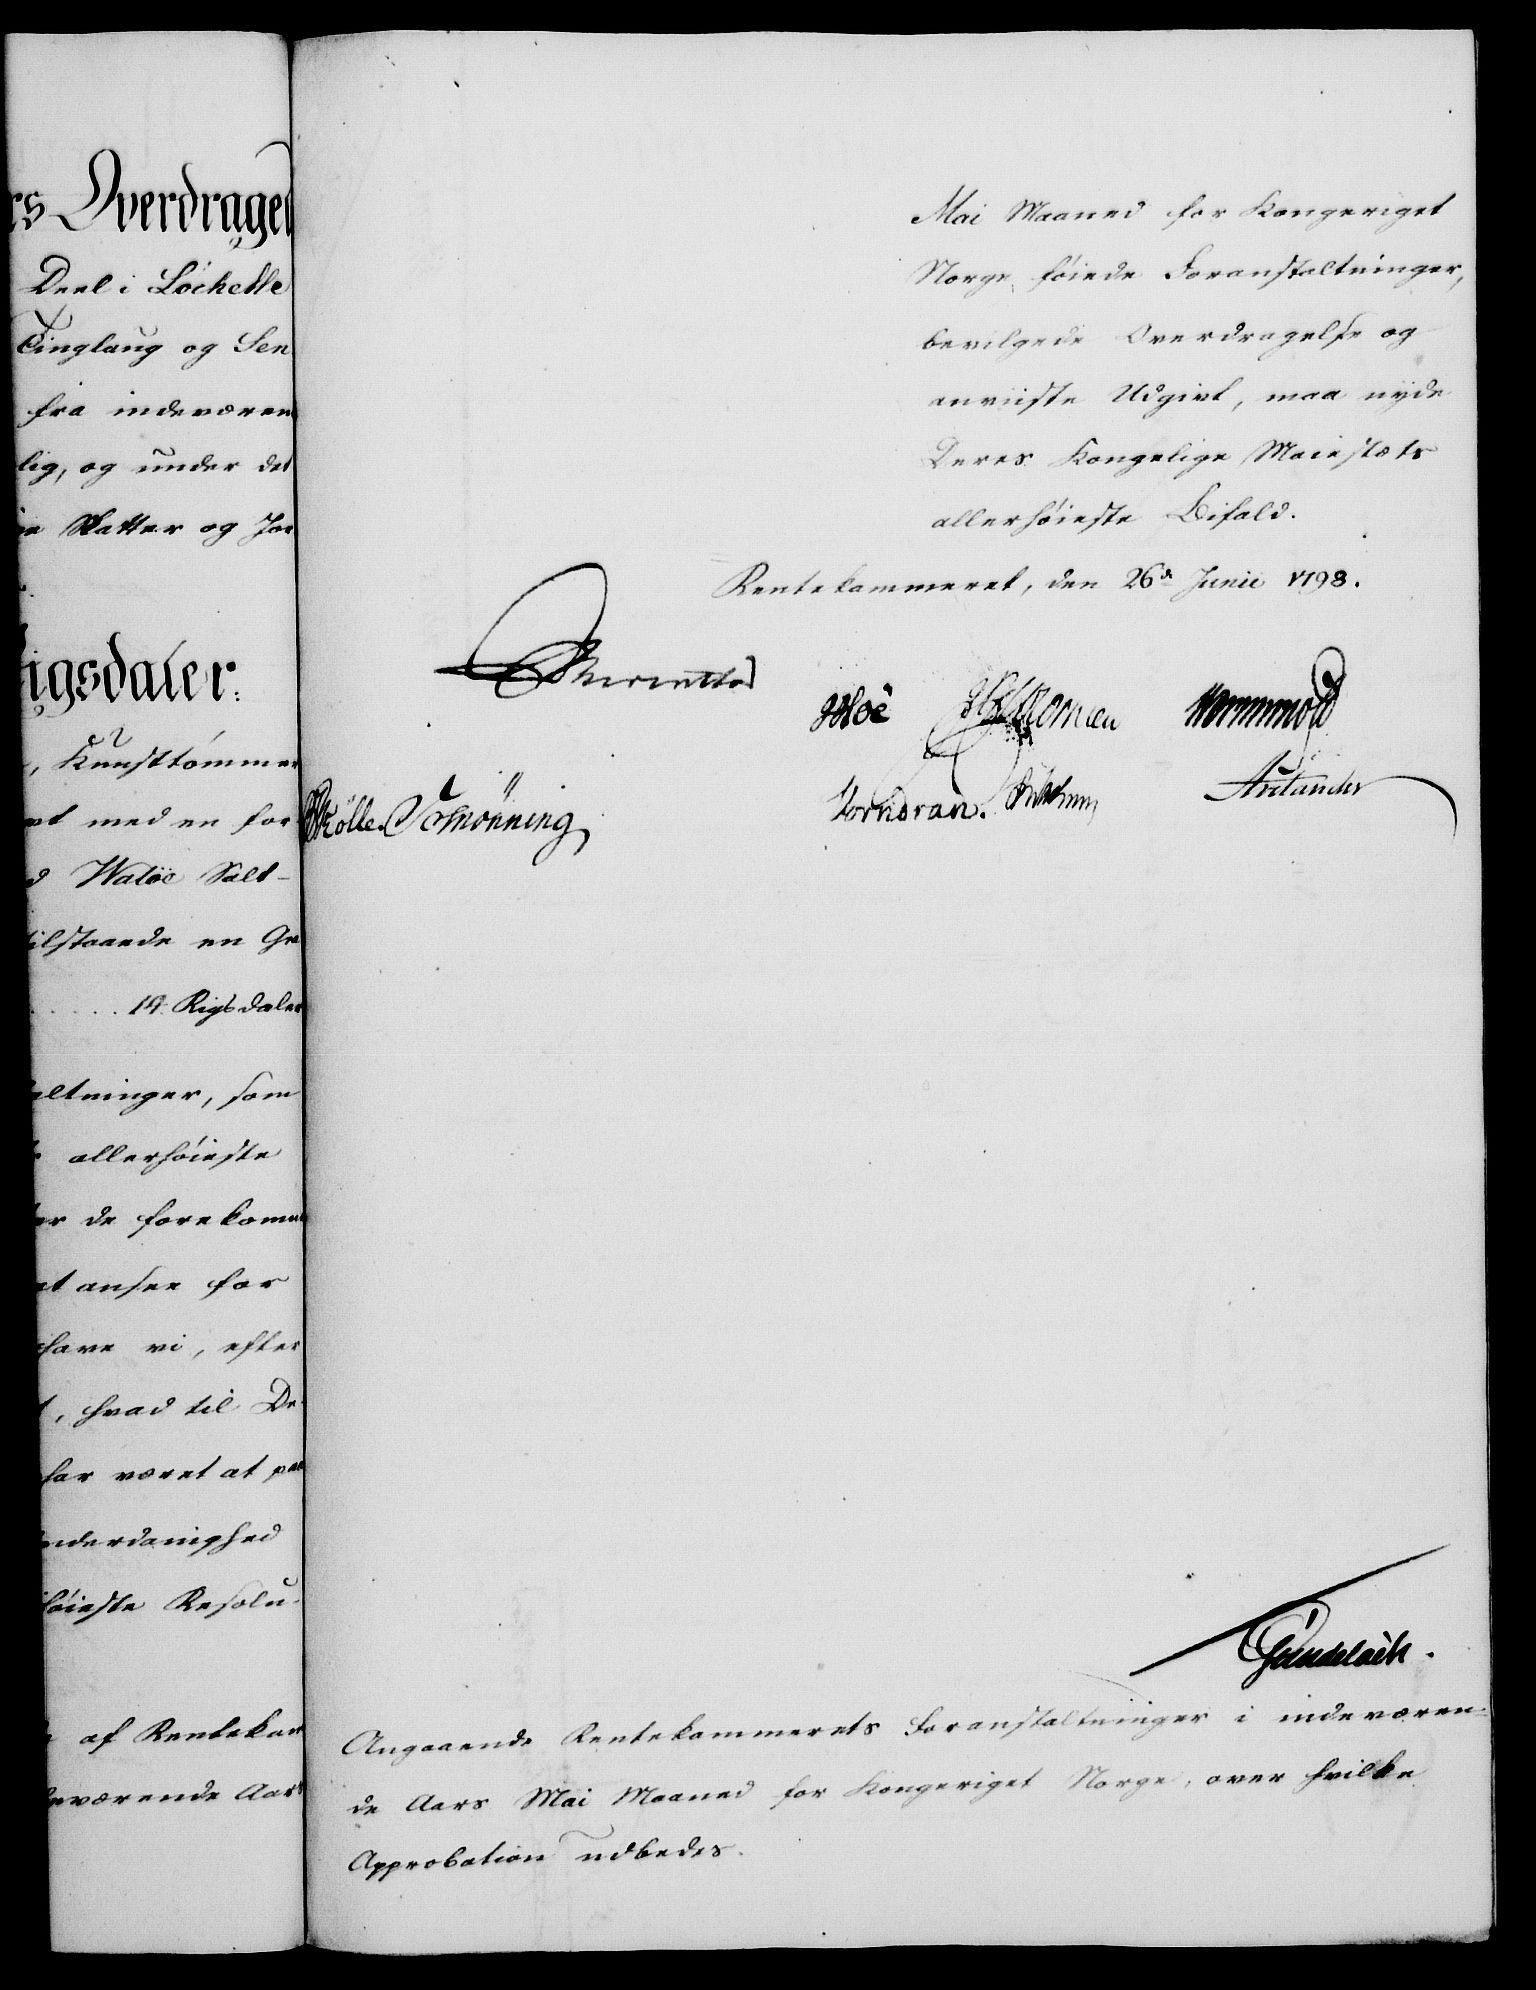 rs Overdragel
Deel i Löchebÿe
Tinglaug og Sen
fra indeværen
lig, og under det
Skatter og Jor
igsdaler.
, Kunsttömmer
med en for
Waløe Salt-
tilstaaende en Gr
14 Rigsdaler
altninger, som
allerhöieste
er de forekomm
at ansee for
have vi, efter
t, hvad til De
har været at paa
underdanighed
höieste Resolu-
af Rentekam
deværende Aars
Mai Maaned for Kongeriget
Norge föiede Foranstaltninger,
bevilgede Overdragelse og
anviiste Udgivt, maa nyde
Deres Kongelige Maiestæts
allerhöieste Bifald.
Rentekammeret, den 26de Junii 1798.
Reventlow
Hoë Wormskiold
Kölle. Schönning Vorndran.
Gundelach.
Angaaende Rentekammerets Foranstaltninger i indeværen-
de Aars Mai Maaned for Kongeriget Norge, over hvilke
Approbation udbedes.